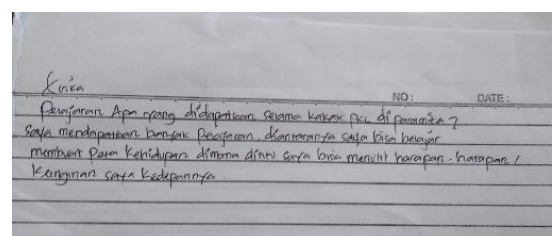 Erika
NO: DATE:
Pelajaran Apa yang didapatkan selama kakak PKL di paramita?
Saya mendapatkan banyak Pelajaran diantaranya saya bisa belajar
membuat Peta Kehidupan dimana disitu saya bisa menulis harapan-harapan /
Keinginan saya kedepannya